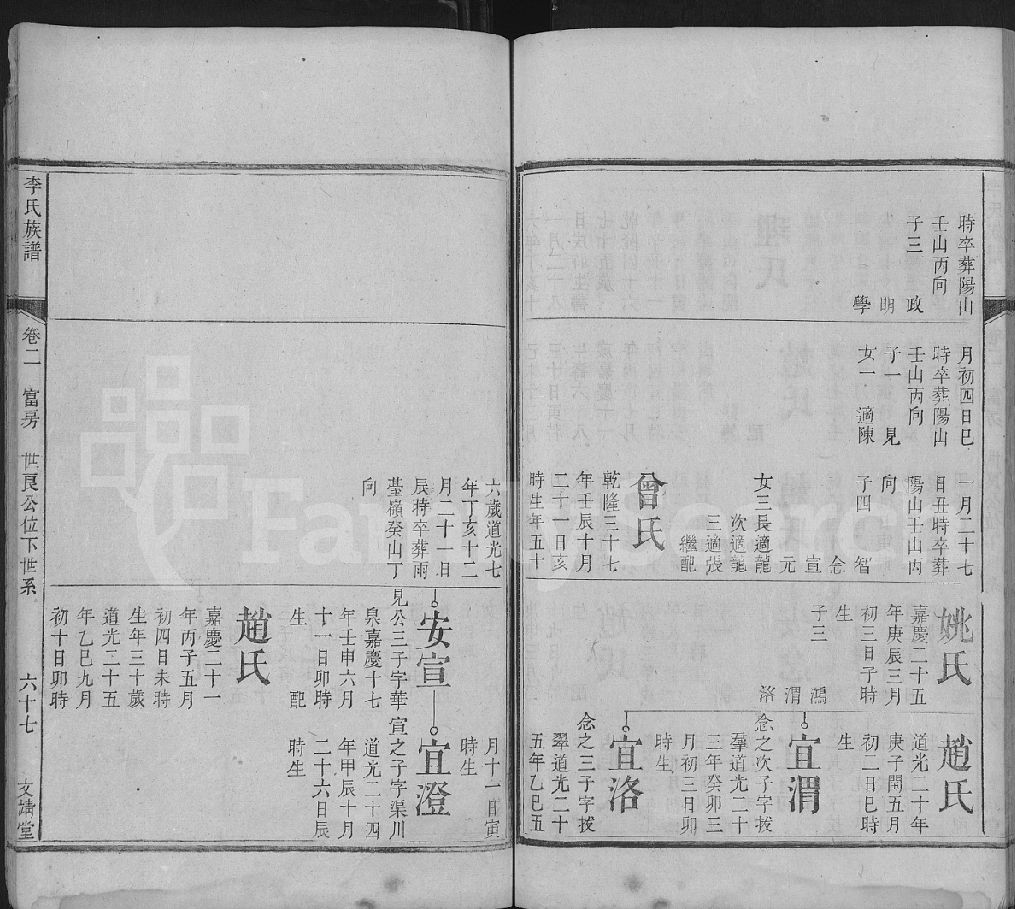 時卒葬陽山
壬山丙向
子三 政
明
學
月初四日巳
時卒葬陽山
壬山丙向
子一 見
女一 適陳
一月二十七
日丑時卒葬
陽山壬山丙
向
子四 智
念
宣
元
女三長適龍
次適龍
三適張
繼配
曾氏
乾隆三十七
年壬辰十月
二十一日亥
時生年五十
姚氏
嘉慶二十五
年庚辰三月
初三日子時
生
子三 鴻
渭
洛
趙氏
道光二十年
庚子閏五月
初二日巳時
生
宜渭
念之次子字拔
羣道光二十
三年癸卯三
月初三日卯
時生
宜洛
念之三子字拔
翠道光二十
五年乙巳五
李氏族譜
卷二 富房 世良公位下世系 六十七
六歲道光七
年丁亥十二
月二十一日
辰時卒葬雨
臺嶺癸山丁
向
安宣
見公三子字華
泉嘉慶十七
年壬申六月
十一日卯時
生 配
趙氏
嘉慶二十一
年丙子五月
初四日未時
生年三十歲
道光二十五
年乙巳九月
初十日卯時
月十一日寅
時生
宜澄
宣之子字渠川
道光二十四
年甲辰十月
二十六日辰
時生
FamilySearch